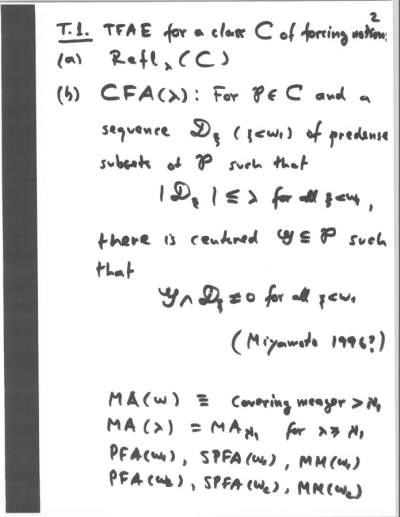 2
T.1. TFAE for a class C of forcing notions:
(a) Refl_λ(C)
(b) CFA(λ): For 𝒫 ∈ C and a
sequence 𝒟_ξ (ξ<ω₁) of predense
subsets of 𝒫 such that
|𝒟_ξ| ≤ λ for all ξ<ω₁,
there is centred 𝒢 ⊆ 𝒫 such
that
𝒢 ∩ 𝒟_ξ ≠ 0 for all ξ<ω₁
(Miyamoto 1996?)
MA(ω) ≡ Covering meager > ℵ₁
MA(λ) = MA_ℵ₁ for λ ≥ ℵ₁
PFA(ω₁), SPFA(ω₁), MM(ω₁)
PFA(ω₂), SPFA(ω₂), MM(ω₂)